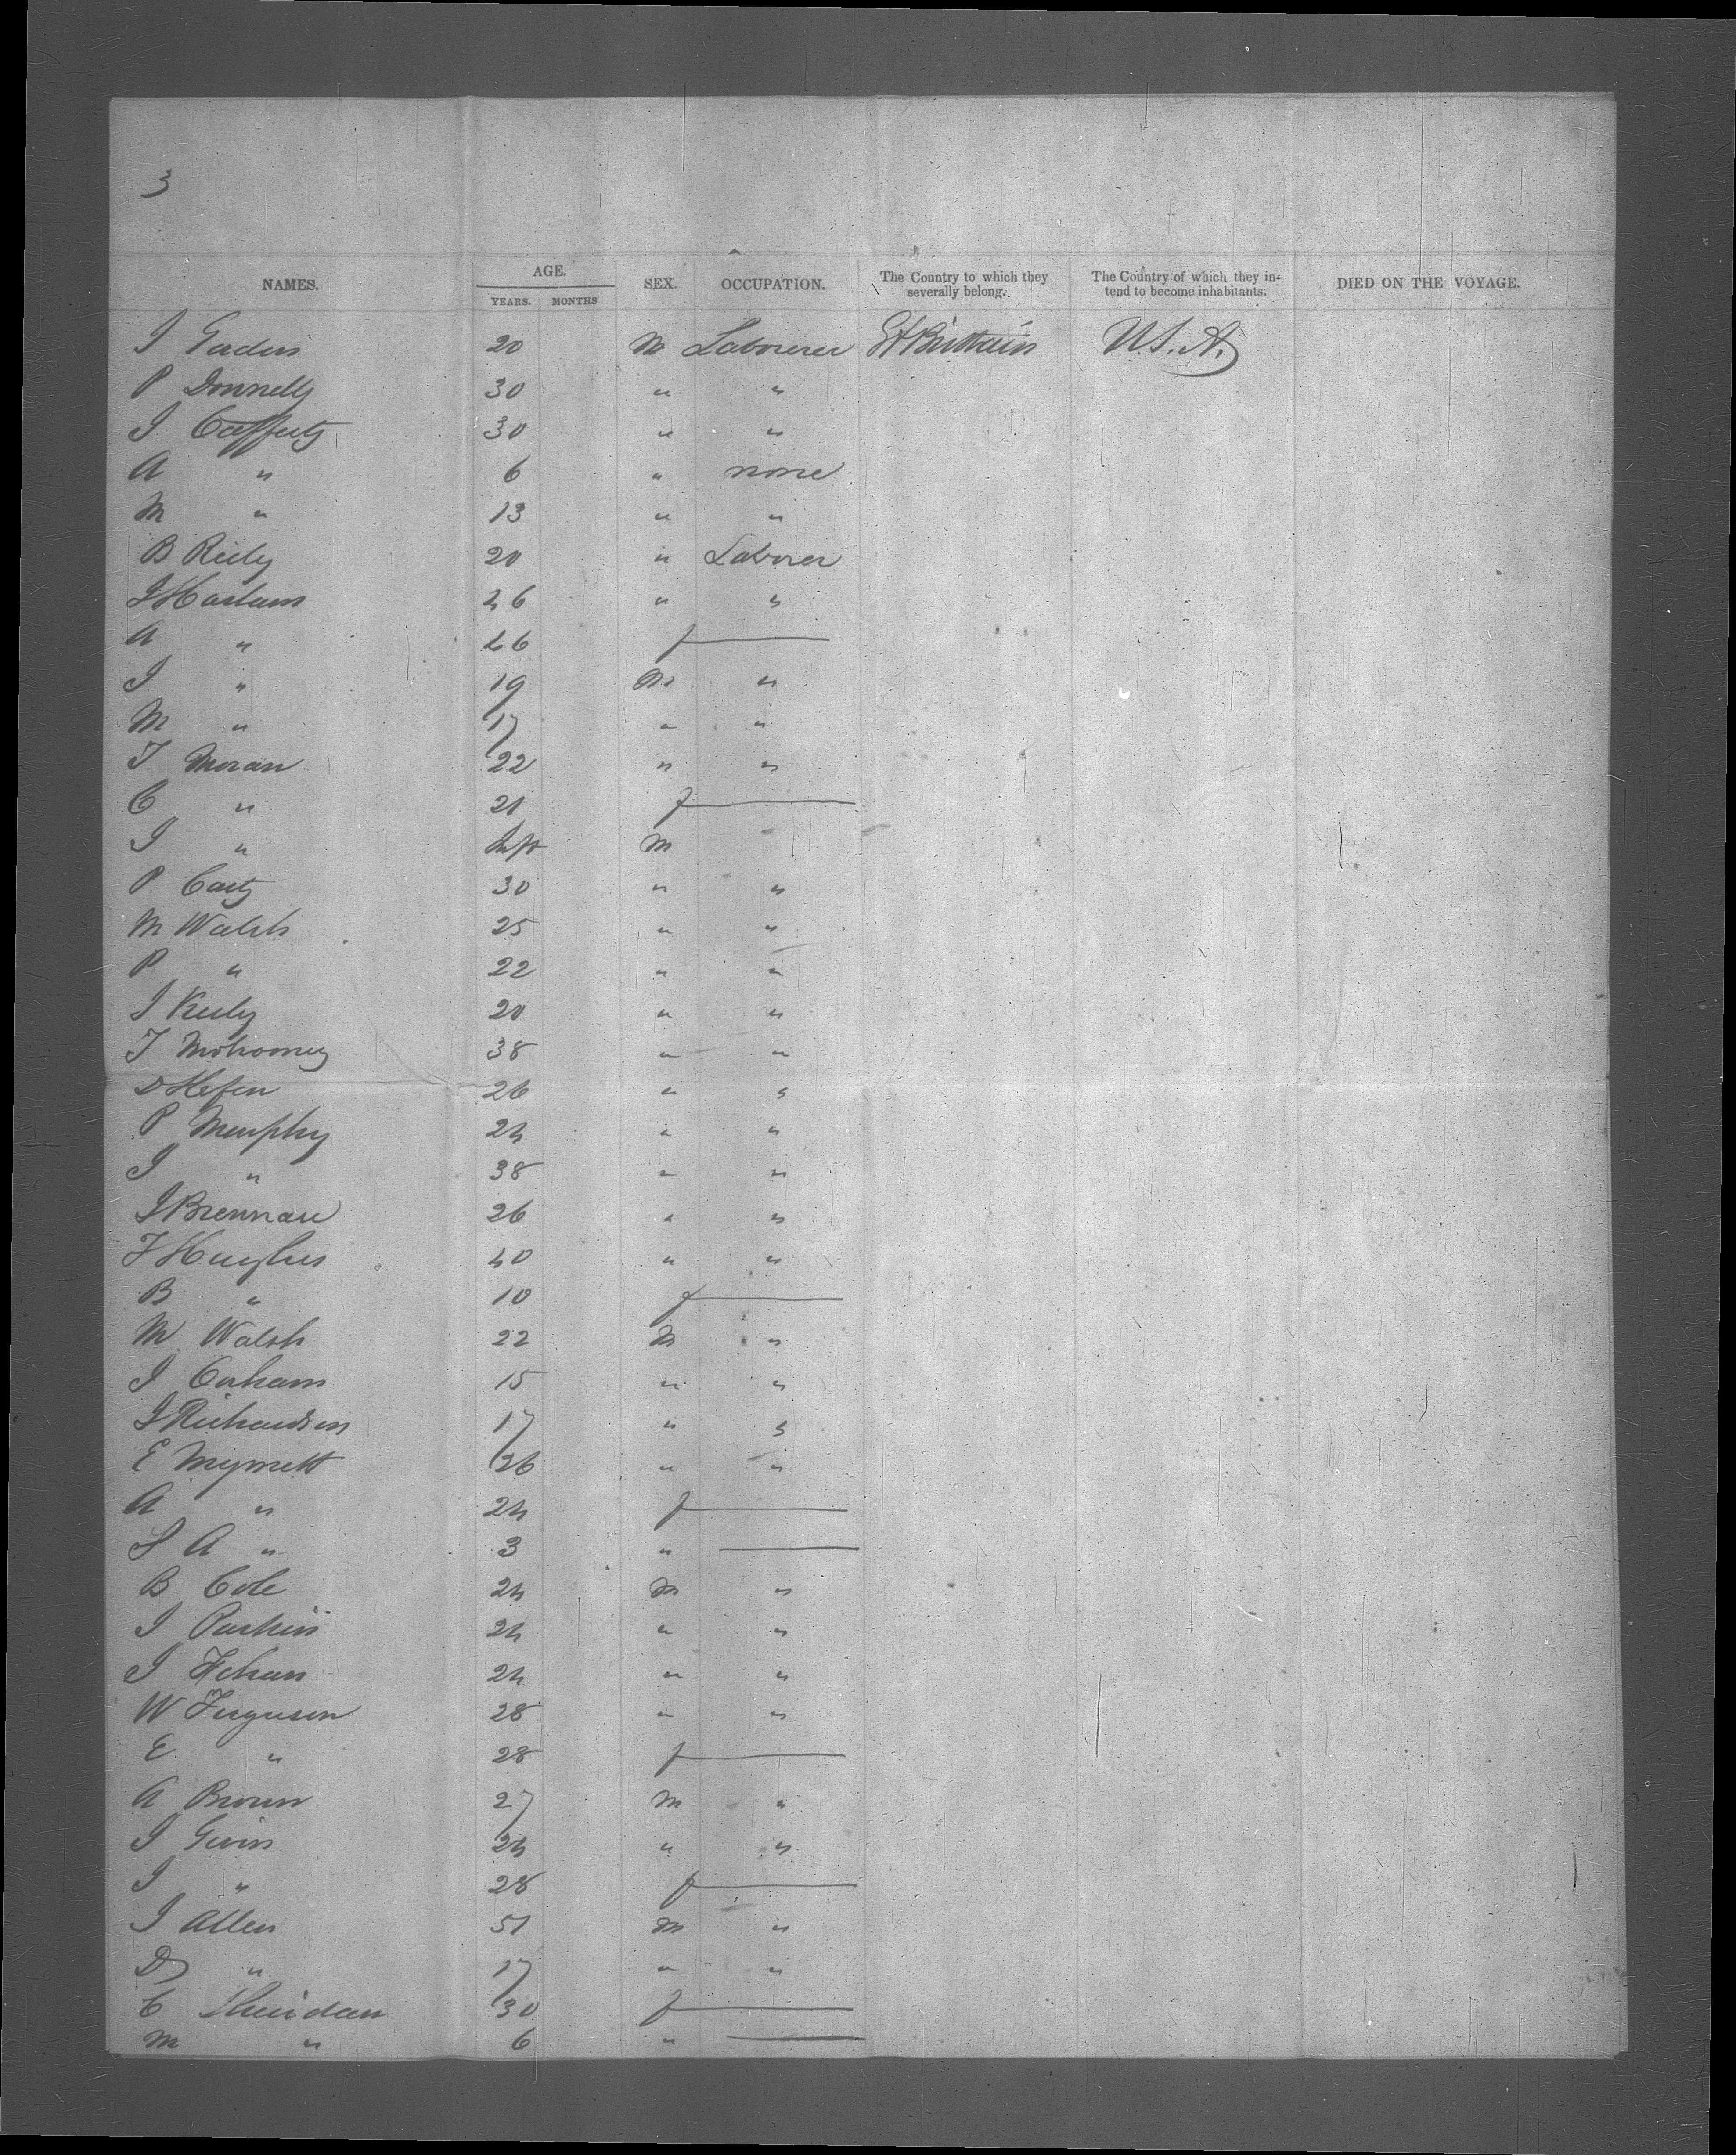 3
NAMES. AGE. YEARS. MONTHS SEX. OCCUPATION. The Country to which they severally belong. The Country of which they intend to become inhabitants. DIED ON THE VOYAGE.
J 20 M Laborer Gt Brittain U.S.A.
P Donnelly 30 " "
J Cafferty 30 " "
A " 6 " none
M " 13 " "
B Reily 20 " Laborer
J Haslam 46 " "
A " 46 f
J " 19 M "
M " 17 " "
T Moran 22 " "
C " 21 f
J " Inft M
P Carty 30 " "
M Walsh 25 " "
P " 22 " "
J Keily 20 " "
T Mohooney 38 " "
D Hefen 26 " "
P Murphy 24 " "
J " 38 " "
J Brennan 26 " "
T Hughes 40 " "
B " 10 f
M Walsh 22 M "
J 15 " "
J Richardson 17 " "
E 26 " "
A " 24 f
S A " 3 "
B Cole 24 M "
J Parkin 24 " "
J 24 " "
W Ferguson 28 " "
E " 28 f
A Brown 27 M "
J Givin 24 " "
J " 28 f
J Allen 51 M "
D " 17 " "
C Sheridan 30 f
M " 6 "